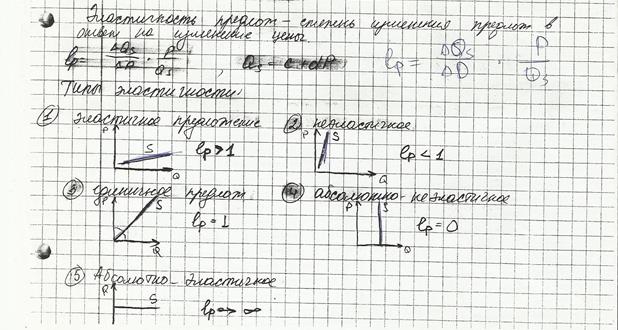 Эластичность предлож – степень изменения предлож в
ответ на изменение цены.
lp = ΔQs/ΔP · P/Qs , Qs = c + dP lp = ΔQs/ΔP · P/Qs
Типы эластичности:
① эластичное предложение ② неэластичное
P S Q lp > 1 P S Q lp < 1
③ единичное предлож ④ абсолютно-неэластичное
P S Q lp = 1 P S Q lp = 0
⑤ Абсолютно-эластичное
P S lp → ∞